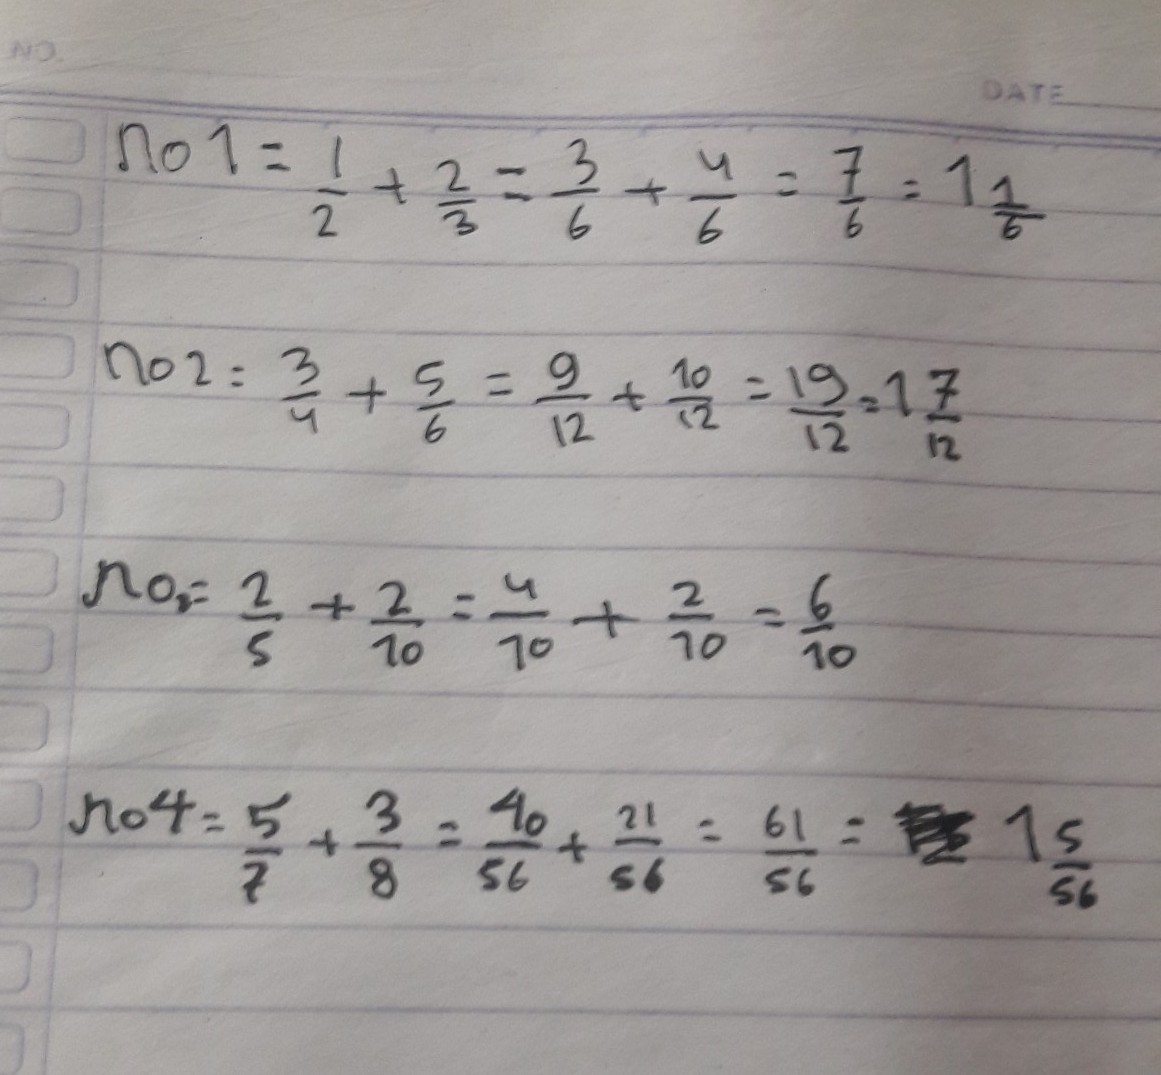 NO.
DATE
no 1 = 1/2 + 2/3 = 3/6 + 4/6 = 7/6 = 1 1/6
no 2 = 3/4 + 5/6 = 9/12 + 10/12 = 19/12 = 1 7/12
no = 2/5 + 2/10 = 4/10 + 2/10 = 6/10
no 4 = 5/7 + 3/8 = 40/56 + 21/56 = 61/56 = 1 5/56